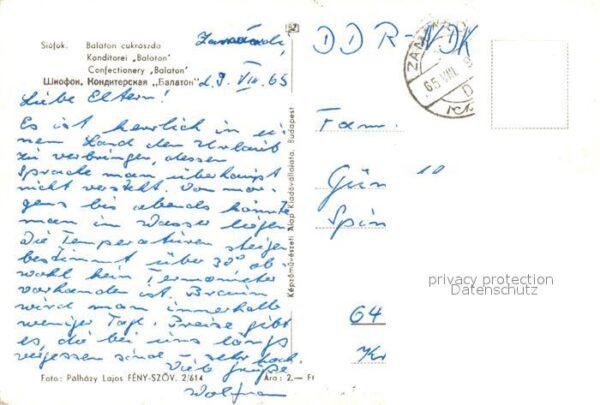 Siófok. Balaton cukrászda
Konditorei „Balaton"
Confectionery „Balaton"
Шиофок. Кондитерская „Балатон"
Zamárdi,
d. 9. VIII. 65
Liebe Eltern!
Es ist herrlich in ei-
nem Land den Urlaub
zu verbringen, dessen
Sprache man überhaupt
nicht versteht. Von mor-
gens bis abends könnte
man im Wasser liegen.
Die Temperaturen steigen
bestimmt über 30° ob-
wohl kein Termometer
vorhanden ist. Braun
wird man innerhalb
weniger Tage. Preise gibt
es, die bei uns längst
vergessen sind – sehr hoch.
Viele Grüße
Wolfram
Foto: Pálházy Lajos FÉNY-SZÖV. 2/614
Ára: 2.— Ft
Képzőművészeti Alap Kiadóvállalata, Budapest
DDR-NDK
ZAMÁRDI
65 VIII. 9
Fam.
Gün 10
Spin
64
Kr
privacy protection
Datenschutz